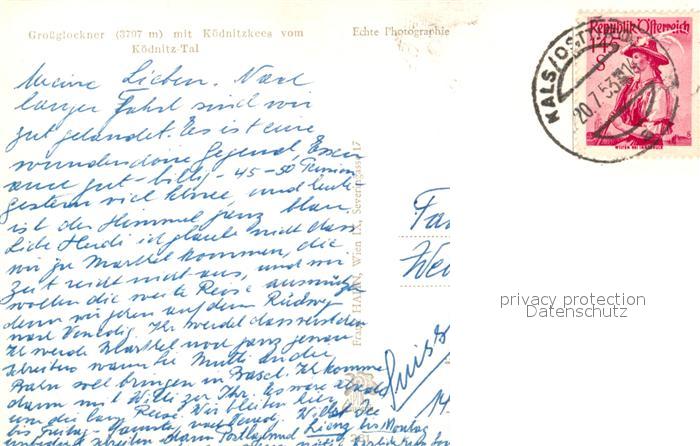 Großglockner (3797 m) mit Ködnitzkees vom
Ködnitz-Tal
Echte Photographie
Meine Lieben. Nach
langer Fahrt sind wir
gut gelandet. Es ist eine
wunderschöne Gegend, Essen
auch gut - billig - 45-50 Pension
gestern viel Regen, und heute
ist der Himmel ganz blau.
Liebe Heidi ich glaube nicht dass
wir zu Marthel kommen, die
Zeit reicht nicht aus, und wir
wollen die weite Reise ausnützen
denn wir gehen auf dem Rückweg
nach Venedig. Ihr werdet das verstehen
Ich werde Marthel noch ganz genau
schreiben wann sie Mutti an die
Bahn soll bringen in Basel. Ich komme
dann mit Willi zu Ihr. Es wäre
um die lange Reise. Wir bleiben hier
bis Freitag - Samstag, nach Venedig.
Lienz bis Montag
Franz HAHN, Wien IX, Severingasse 17
Fa
We
Suiss
14.
Republik Österreich
1.45
S
KALS/OSTTIROL
20.7.53
privacy protection
Datenschutz